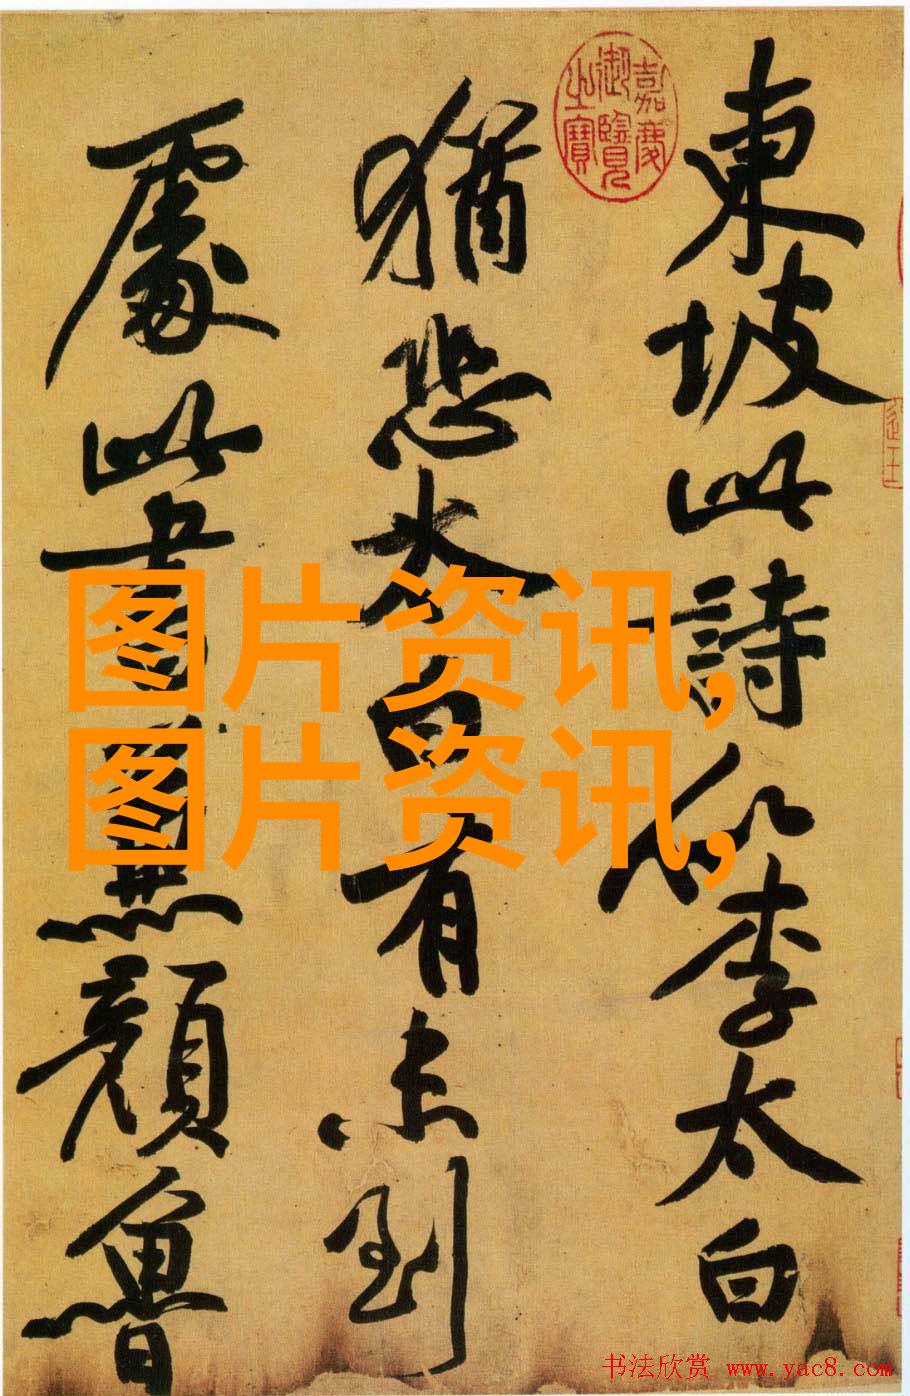 東坡此詩似李太白
嘉慶
御覽
之寶
猶恐太白有未到
處此書兼顏魯
图片资讯,
图片资讯,
书法欣赏 www.yac8.com